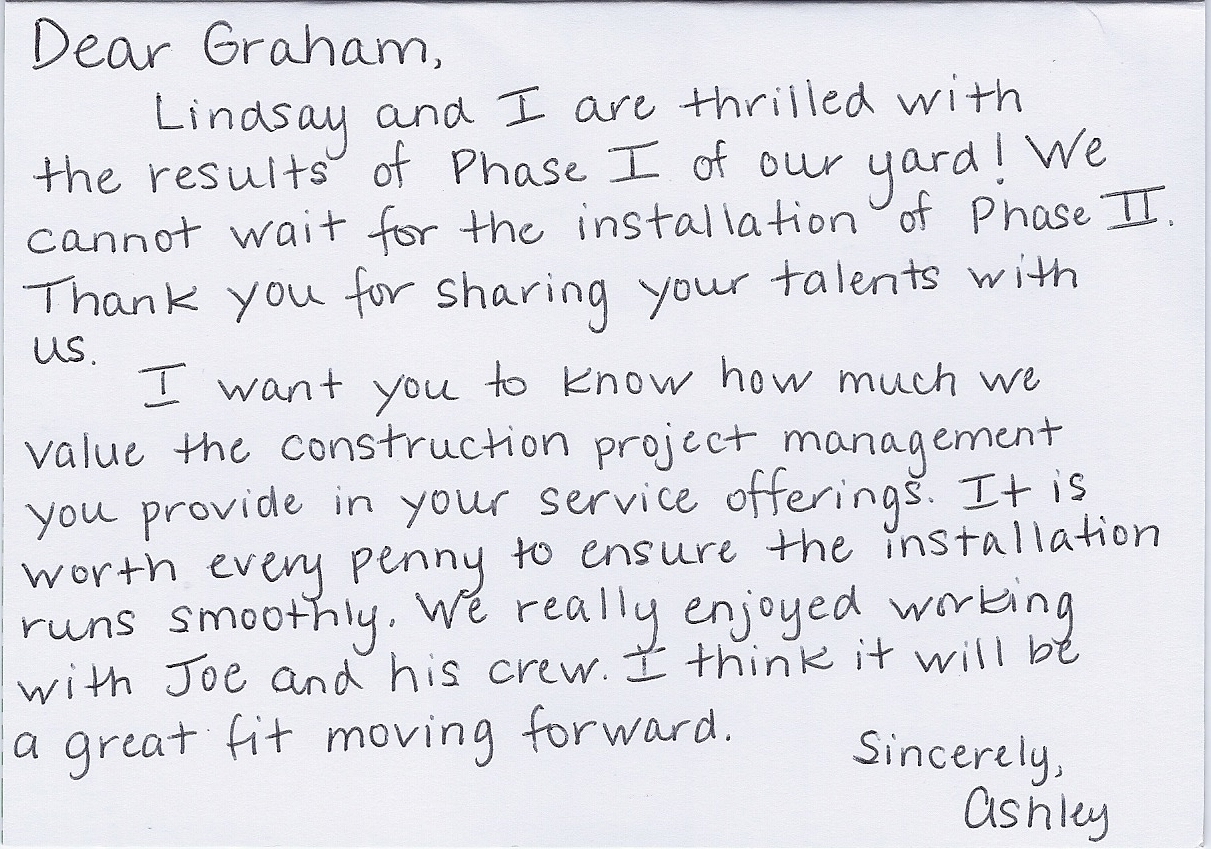 Dear Graham,
Lindsay and I are thrilled with
the results of Phase I of our yard! We
cannot wait for the installation of Phase II.
Thank you for sharing your talents with
us.
I want you to know how much we
value the construction project management
you provide in your service offerings. It is
worth every penny to ensure the installation
runs smoothly. We really enjoyed working
with Joe and his crew. I think it will be
a great fit moving forward.
Sincerely,
Ashley